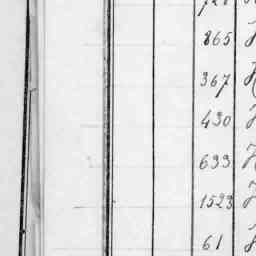 865
367
430
633
1523
61